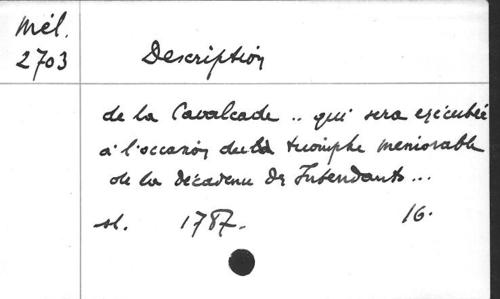 Mél.
2703
Description
de la Cavalcade .. qui sera exécutée
à l'occasion du triomphe memorable
de la décadence des Intendants...
sl. 1787. 16.